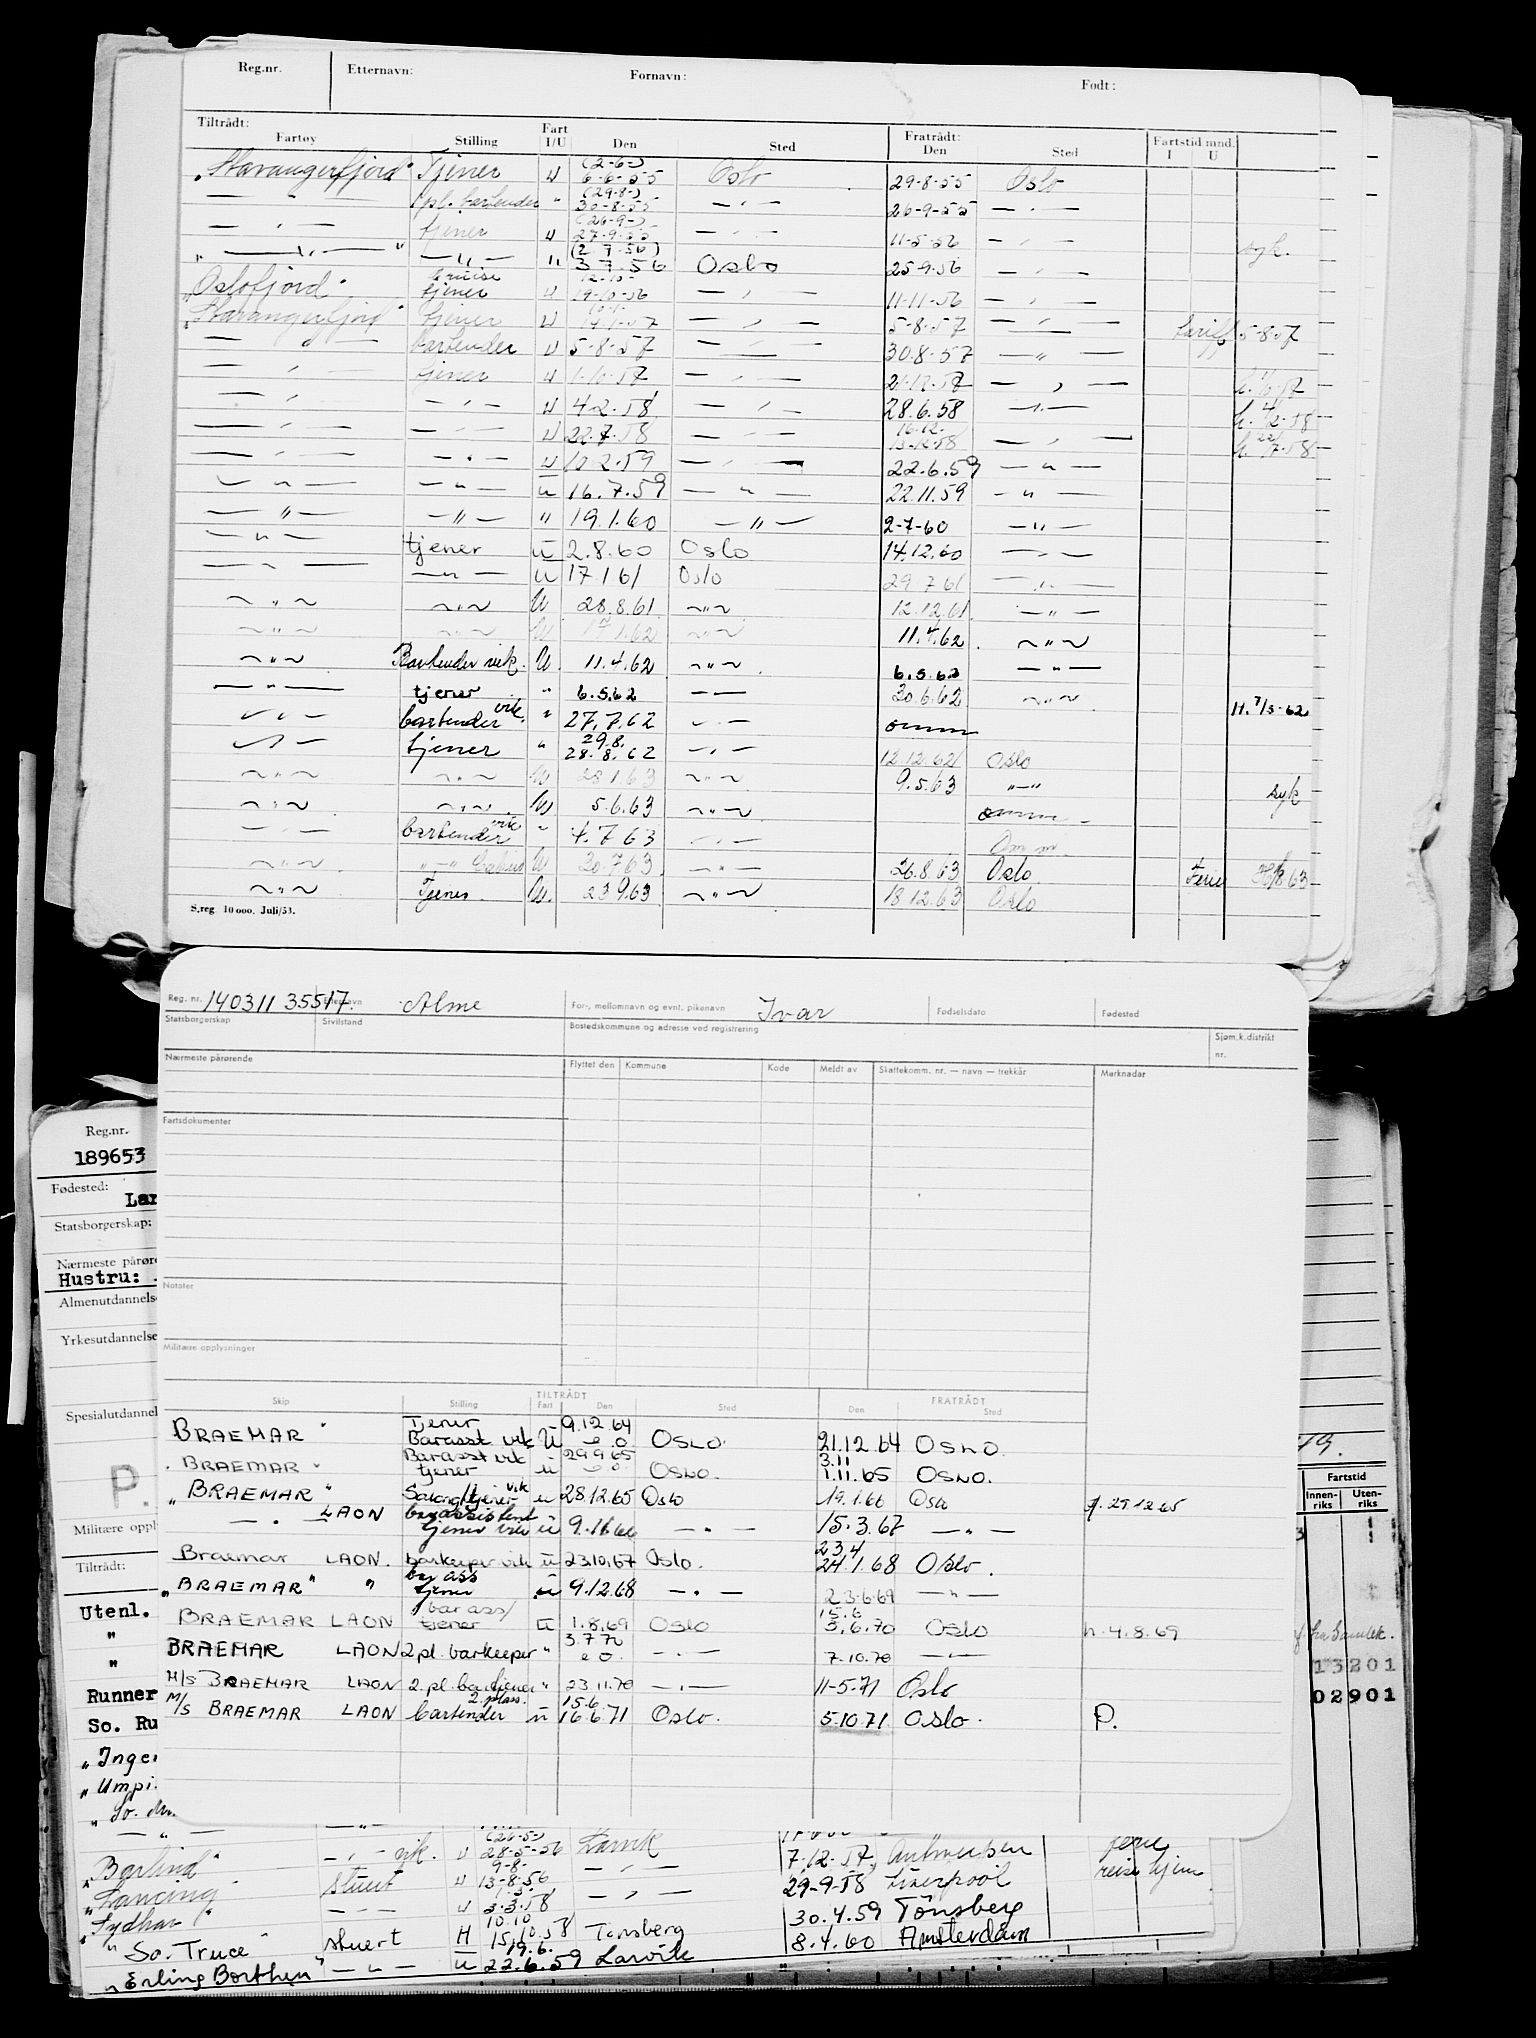 Reg.nr. Etternavn: Fornavn: Født:
Tiltrådt: Fratrådt: Fartstid mnd.
Fartøy Stilling Fart I/U Den Sted Den Sted I U
(2-6-)
"Stavangerfjord" Tjener U 6-6-55 Oslo 29-8-55 Oslo
(29.8-)
— " — spl. bartender " 30-8-55 — " — 26-9-55 — " —
(26-9-)
— " — tjener U 27-9-55 — " — 11-5-56 — " — syk.
(2.7.56)
" — " — " — " — " 3 7.56 Oslo 25.9.56 — " —
cruise 12-10-
"Oslofjord" tjener U 19-10-56 — " — 11-11-56 — " —
"Stavangerfjord" tjener U 14-1-57 — " — 5-8-57 — " — tariff 5-8-57
— " — bartender U 5-8-57 — " — 30.8-57 — " —
— " — tjener U 1-10-57 — " — 21-12-57 — " — h. 1/10-57
— " — — " — U 4 2.58 — " — 28.6.58 — " — h. 4/2-58
16.12.
— " — — " — U 22.7.58 — " — 13-12-58 — " — h. 22/7-58
— " — — " — U 10 2.59 — " — 22.6.59 — " —
— " — — " — u 16.7.59 — " — 22.11.59 — " —
— " — — " — " 19.1.60 — " — 2-7-60 — " —
— " — tjener u 2.8.60 Oslo 14.12.60 — " —
— " — — " — u 17 1 61 Oslo 29 7 61 — " —
— " — — " — U 28.8.61 — " — 12.12.61 — " —
— " — — " — U 17 1.62 — " — 11.4.62 — " —
— " — Bartender vik. U. 11.4.62 — " — 6.5.62 — " —
— " — tjener " 6.5.62 — — 30.6.62 — " — H. 7/5-62
— " — bartender vik. " 27.7.62 — " — omm
29.8.
— " — tjener " 28.8.62 — " — 12.12.62 Oslo
— " — — " — U 28 1 63 — " — 9.5.63 — " — syk
— " — — " — U 5.6.63 — " — omm —
— " — bartender vik " 4.7 63 — " — Om m.
— " — — " — U 30.7 63 — " — 26.8.63 Oslo Ferie
— " — Tjener. U. 23 9.63 — " — 18 12.63 Oslo
S.reg 10 000. Juli/53.
Reg. nr. 140311 35517. Etternavn Alme For-, mellomnavn og evnt. pikenavn Ivar Fødselsdato Fødested
Statsborgerskap Sivilstand Bostedskommune og adresse ved registrering Sjøm.k.distrikt nr.
Nærmeste pårørende Flyttet den Kommune Kode Meldt av Skattekomm. nr. — navn — trekkår Merknader
Fartsdokumenter
Notater
Militære opplysninger
TILTRÅDT FRATRÅDT
Skip Stilling Fart Den Sted Den Sted
Tjener 9.12 64
BRAEMAR " Barasst vik U e o OSLO. 21.12.64 OSLO.
Barasst vik 29 9 65 3.11
. BRAEMAR " tjener u e o OSLO. 1.11.65 OSLO.
" BRAEMAR " Salongtjener vik u 28.12.65 Oslo 19.1.66 Oslo f. 29.12.65
— " — LAON barassistent
tjener vik u 9.11.66 — " — 15.3.67 — " —
23.4
Braemar LAON. barkeeper vik u 23.10.67 Oslo. 24.1.68 Oslo.
bar ass
"BRAEMAR" " tjener u 9.12.68 — " — 23.6.69 — " —
bar ass/ 15.6
BRAEMAR LAON tjener u 1.8.69 Oslo 5.6.70 Oslo h. 4.8.69
3.7 70
BRAEMAR LAON 2 pl. barkeeper " e o. — " — 7.10.70 — " —
M/s BRAEMAR LAON 2. pl. bartjener " 23 11.70 — " — 11-5.71 Oslo
2. plass. 15.6
M/s BRAEMAR LAON bartender u 16.6 71 Oslo. 5.10.71 Oslo. P.
Reg.nr.
189653
Fødested:
Lar
Statsborgerskap:
Nærmeste pårøre
Hustru:
Almenutdannelse
Yrkesutdannelse
Spesialutdannel
P.
Militære oppl
Tiltrådt:
Utenl.
"
"
Runner
So. Ru
"Inger
"Umpi.
" So.
19.
Fartstid
Innen-riks Uten-riks
13201
02901
(26-5-)
— " — vik. U 28-5-56 Larvik 7.12-57, Antwerpen ferie
9-8-
"Borlind" stuert U 13-8-56 — " — 29-9-58 Liverpool reise hjem
"Lancing" — " — U 3.3.58 — " — 30.4.59 Tönsberg
10.10
"Sydhav"
" So. Truce " stuert H 15.10.58 Tønsberg 8.4.60 Amsterdam
19.6.
"Erling Borthen" — " — u 22.6.59 Larvik